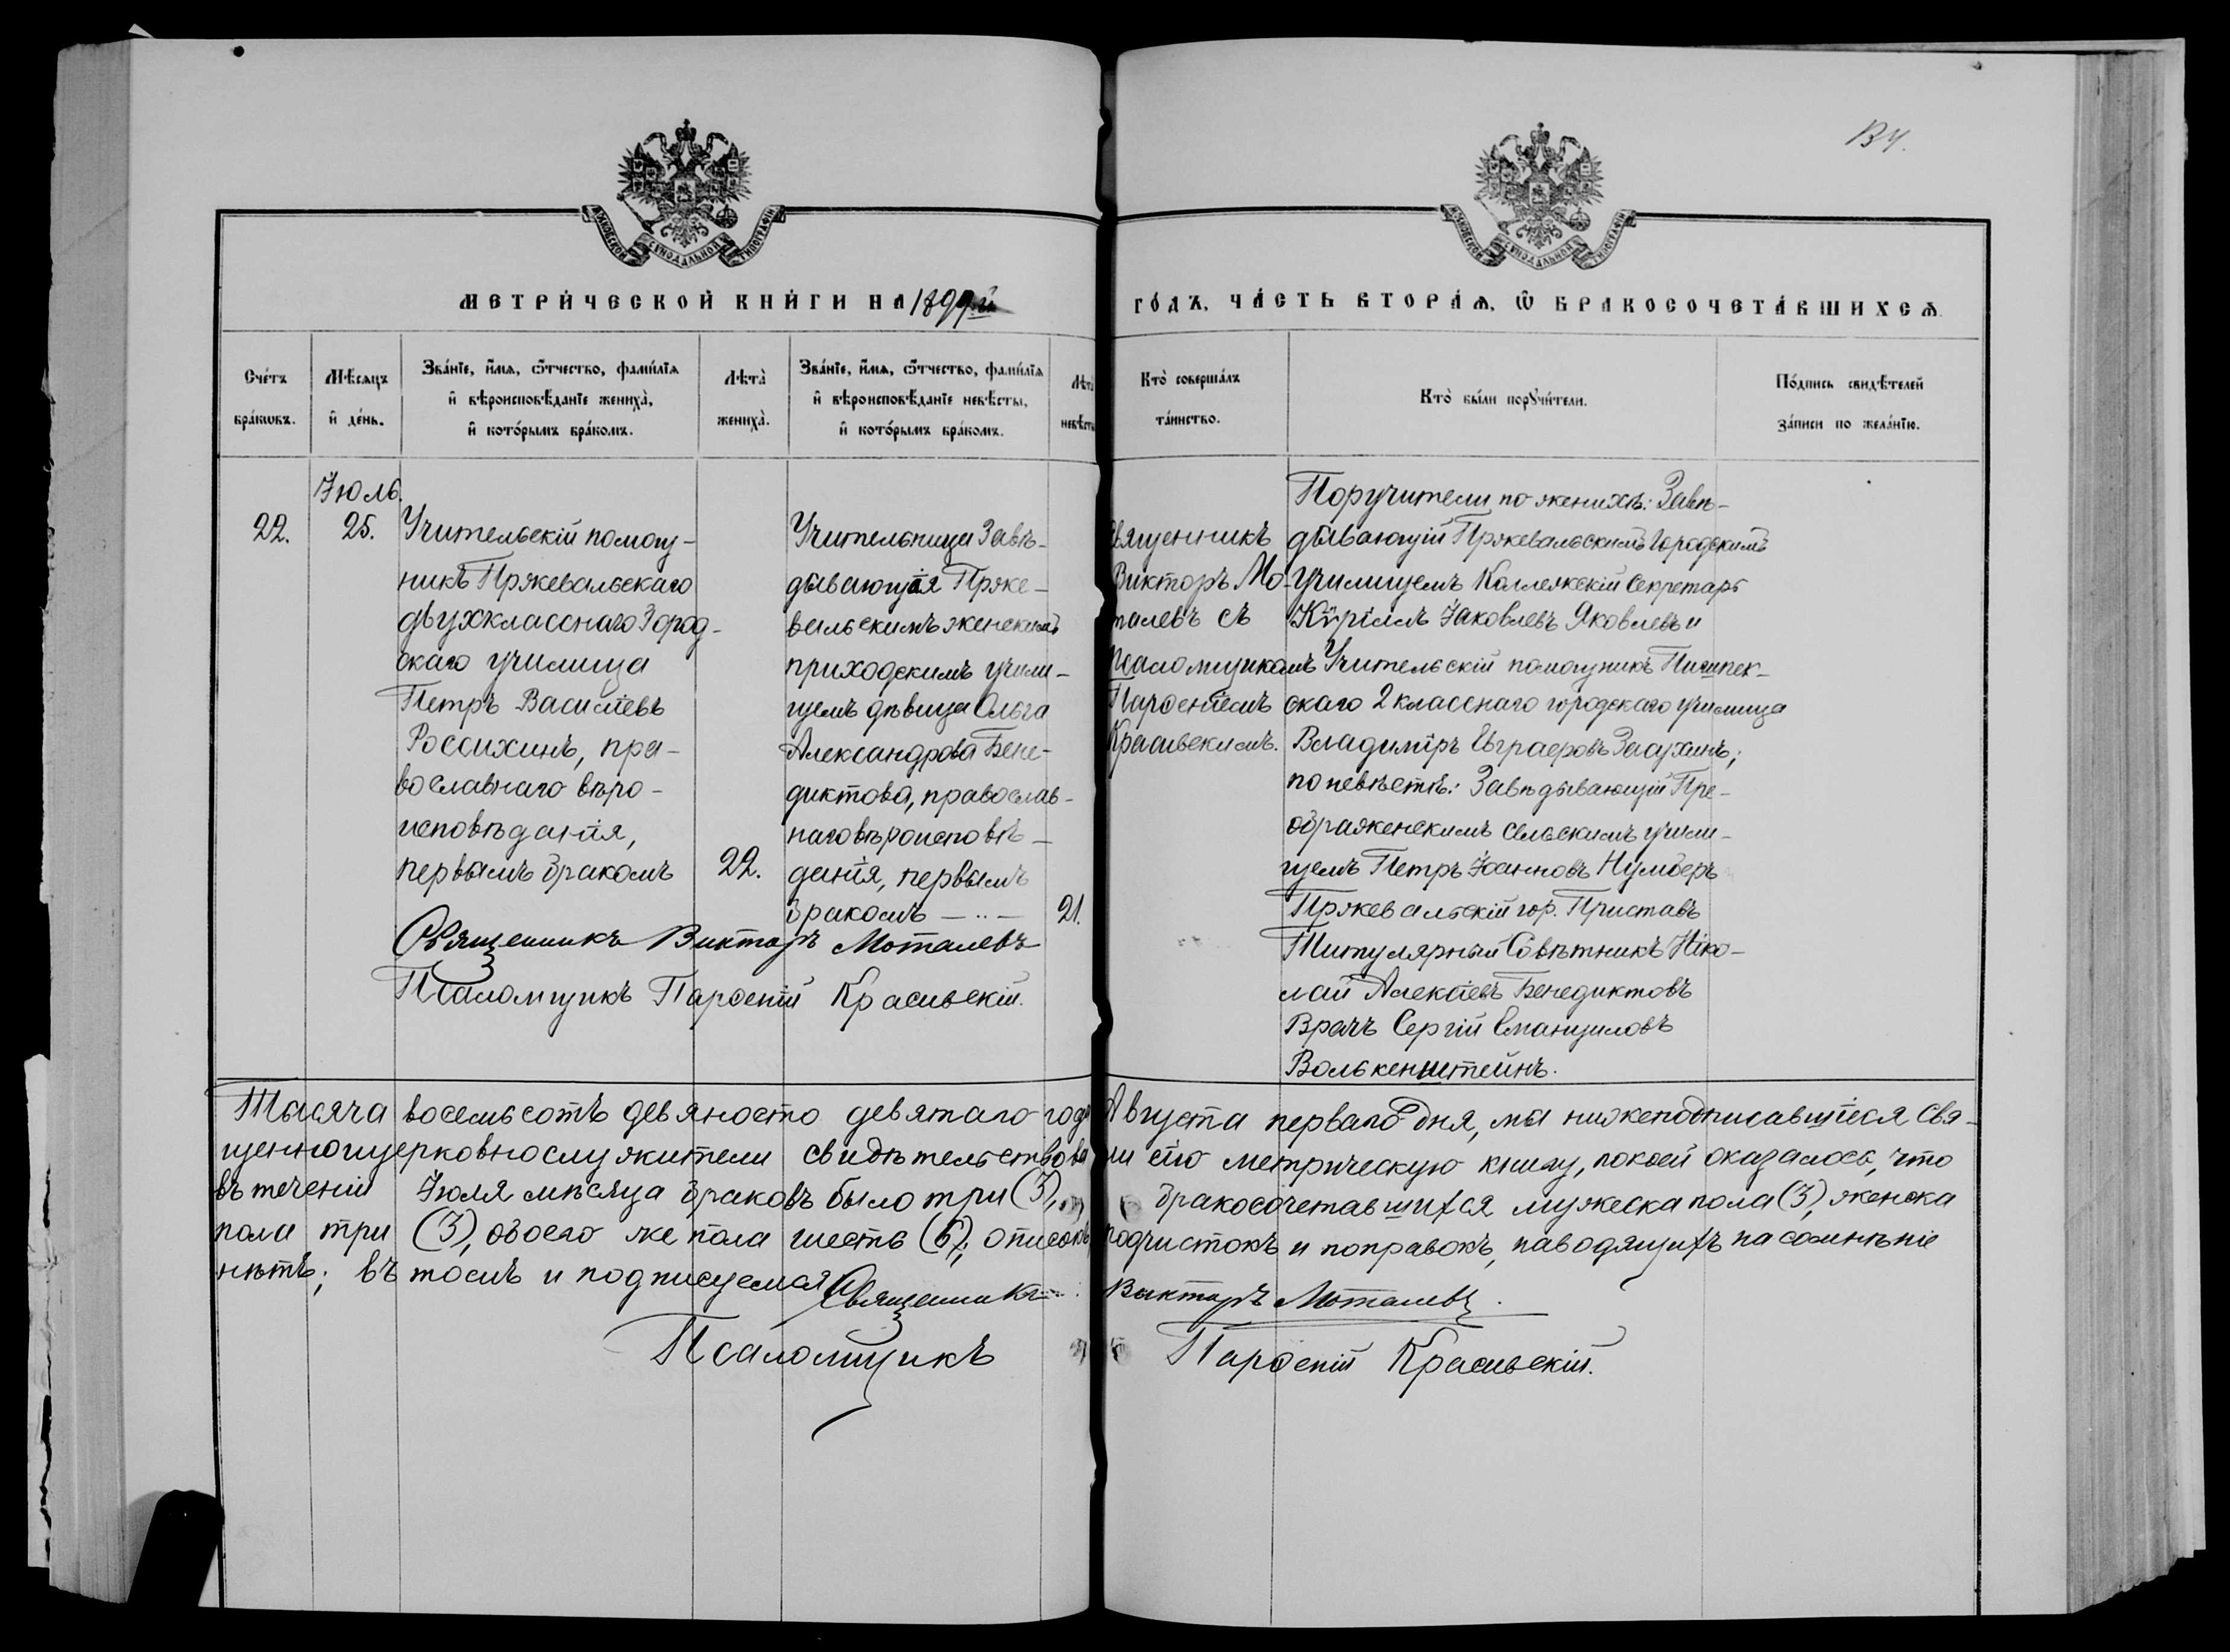 134.
МОСКОВСКОЙ СѴНОДАЛЬНОЙ ТИПОГРАФІИ
МОСКОВСКОЙ СѴНОДАЛЬНОЙ ТИПОГРАФІИ
МЕТРИ́ЧЕСКОЙ КНИ́ГИ НА 1899й ГО́ДЪ, ЧА́СТЬ ВТОРА́Ѧ, Ѽ БРАКОСОЧЕТА́ВШИХСѦ.
Сче́тъ
бра́кѡвъ.
Мѣ́сѧцъ
и҆ де́нь.
Зва́нїе, и҆́мѧ, ѻ҆́тчество, фами́лїѧ
и҆ вѣроисповѣ́данїе жениха̀,
и҆ кото́рымъ бра́комъ.
Лѣта̀
жениха̀.
Зва́нїе, и҆́мѧ, ѻ҆́тчество, фами́лїѧ
и҆ вѣроисповѣ́данїе невѣ́сты,
и҆ кото́рымъ бра́комъ.
Лѣта̀
невѣсты
Кто̀ соверша́лъ
та́инство.
Кто̀ бы́ли порꙋчи́тели.
По́дпись свидѣ́телей
за́писи по жела́нїю.
22.
Іюль.
25.
Учительскій помощ-
никъ Пржевальскаго
двухкласснаго Город-
скаго училища
Петръ Василіевъ
Россихинъ, пра-
вославнаго вѣро-
исповѣданія,
первымъ бракомъ
22.
Учительница Завѣ-
дывающая Прже-
вальскимъ женскимъ
приходскимъ учили-
щемъ дѣвица Ольга
Александрова Бене-
диктова, православ-
наго вѣроисповѣ-
данія, первымъ
бракомъ
21.
Священникъ Викторъ Моталевъ
Псаломщикъ Парѳеній Красивскій.
Священникъ
Викторъ Мо-
талевъ съ
псаломщикомъ
Парѳеніемъ
Красивскимъ.
Поручители по женихѣ: Завѣ-
дывающій Пржевальскимъ Городскимъ
Училищемъ Коллежскій Секретарь
Кѵріллъ Іаковлевъ Яковлевъ и
Учительскій помощникъ Пишпек-
скаго 2 класснаго городскаго училища
Владиміръ Евграфовъ Заухинъ;
по невѣстѣ: Завѣдывающій Пре-
ображенскимъ сельскимъ учили-
щемъ Петръ Іоанновъ Нумберъ
Пржевальскій гор. Приставъ
Титулярный Совѣтникъ Нико-
лай Алексѣевъ Бенедиктовъ
Врачъ Сергій Емануиловъ
Волькенштейнъ.
Тысяча восемьсотъ девяносто девятаго года Августа перваго дня, мы нижеподписавшіеся свя-
щенноцерковнослужители свидѣтельствовали сію метрическую книгу, по коей оказалось, что
въ теченіи Іюля мѣсяца браковъ было три (3), бракосочетавшихся мужеска пола (3), женска
пола три (3), обоего же пола шесть (6); описокъ подчистокъ и поправокъ, наводящихъ на сомнѣніе
нѣтъ; въ томъ и подписуемся
Священникъ Викторъ Моталевъ.
Псаломщикъ Парѳеній Красивскій.